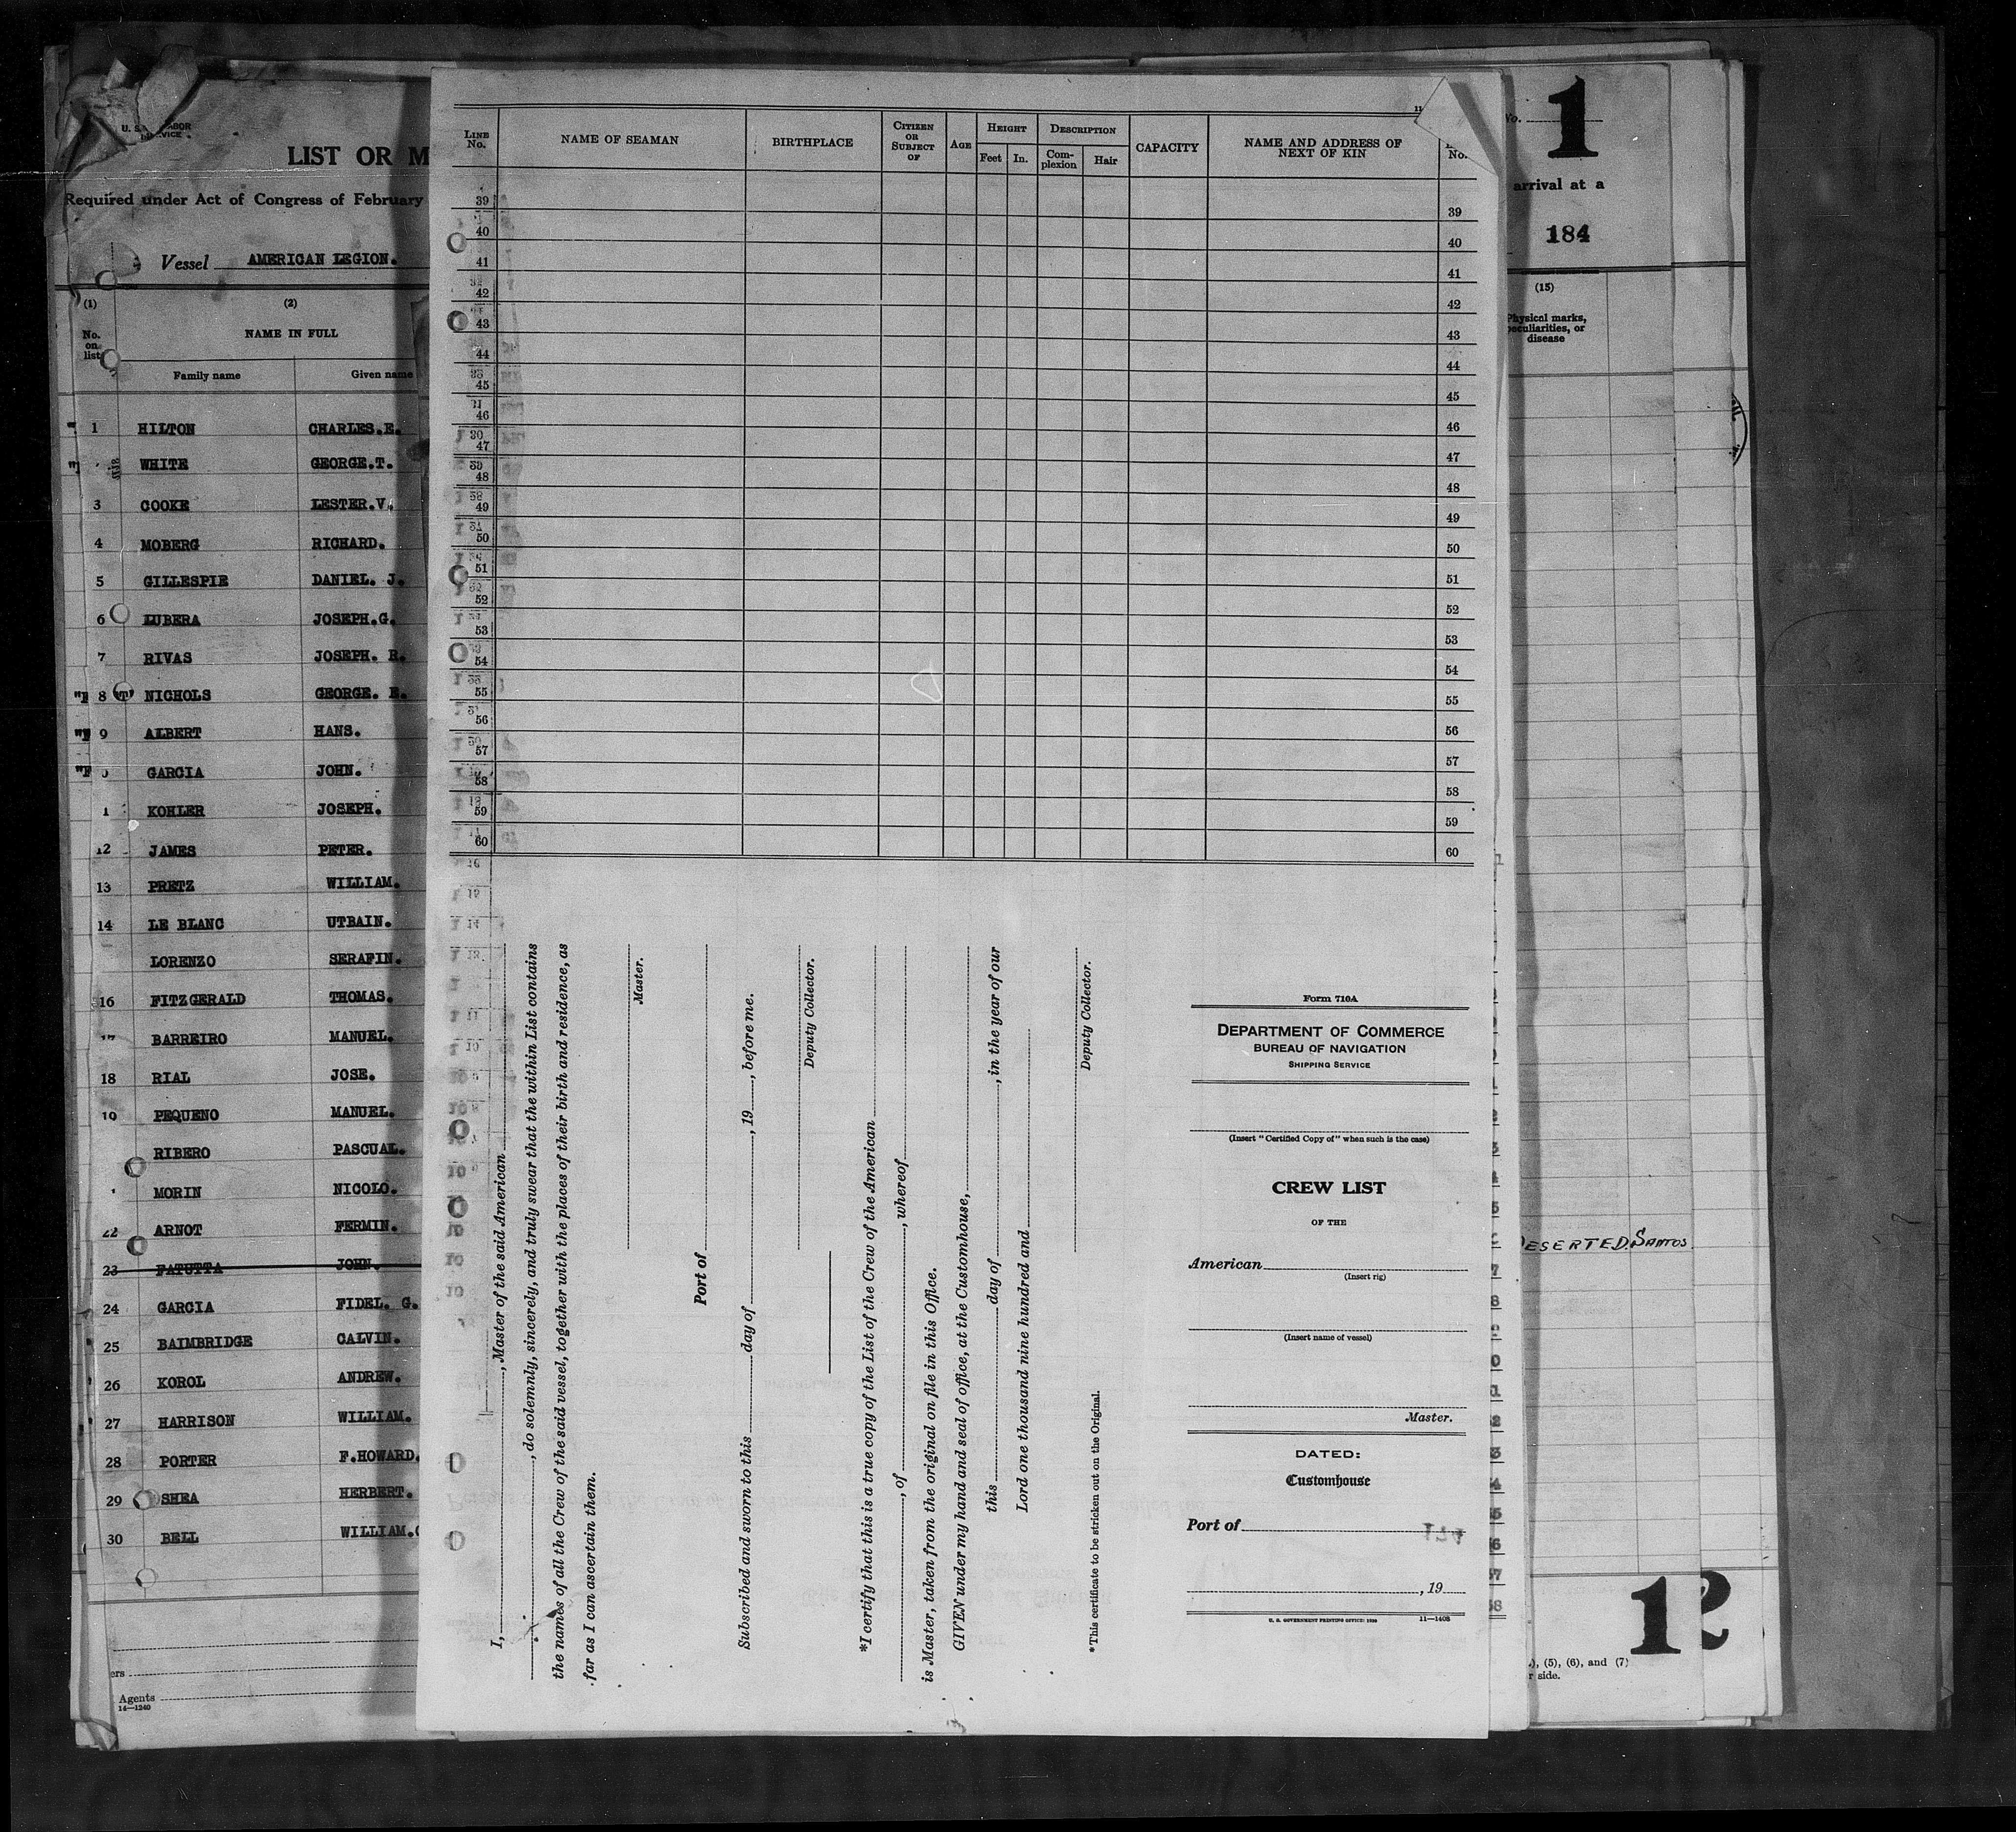 LIST OR M
Required under Act of Congress of February
Vessel AMERICAN LEGION.
(1) (2)
No. on list
NAME IN FULL
Family name Given name
1 HILTON CHARLES.E.
WHITE GEORGE.T.
3 COOKE LESTER.V.
4 MOBERG RICHARD.
5 GILLESPIE DANIEL. J.
6 LUBERA JOSEPH.G.
7 RIVAS JOSEPH. R.
8 NICHOLS GEORGE. E.
9 ALBERT HANS.
GARCIA JOHN.
KOHLER JOSEPH.
12 JAMES PETER.
13 PRETZ WILLIAM.
14 LE BLANC UTBAIN.
LORENZO SERAFIN.
16 FITZGERALD THOMAS.
17 BARREIRO MANUEL.
18 RIAL JOSE.
19 PEQUENO MANUEL.
RIBERO PASCUAL.
MORIN NICOLO.
22 ARNOT FERMIN.
23 FATUTTA JOHN.
24 GARCIA FIDEL. G.
25 BAIMBRIDGE CALVIN.
26 KOROL ANDREW.
27 HARRISON WILLIAM.
28 PORTER F.HOWARD.
29 SHEA HERBERT.
30 BELL WILLIAM.
Agents
14—1240
LINE No.
NAME OF SEAMAN
BIRTHPLACE
CITIZEN OR SUBJECT OF
AGE
HEIGHT
Feet In.
DESCRIPTION
Complexion Hair
CAPACITY
NAME AND ADDRESS OF NEXT OF KIN
No.
39 39
40 40
41 41
42 42
43 43
44 44
45 45
46 46
47 47
48 48
49 49
50 50
51 51
52 52
53 53
54 54
55 55
56 56
57 57
58 58
59 59
60 60
I, , Master of the said American
, do solemnly, sincerely, and truly swear that the within List contains
the names of all the Crew of the said vessel, together with the places of their birth and residence, as
far as I can ascertain them.
Master.
Port of
Subscribed and sworn to this day of , 19 , before me.
Deputy Collector.
*I certify that this is a true copy of the List of the Crew of the American
, of , whereof
is Master, taken from the original on file in this Office.
GIVEN under my hand and seal of office, at the Customhouse,
this day of , in the year of our
Lord one thousand nine hundred and
Deputy Collector.
*This certificate to be stricken out on the Original.
Form 710A
DEPARTMENT OF COMMERCE
BUREAU OF NAVIGATION
SHIPPING SERVICE
(Insert "Certified Copy of" when such is the case)
CREW LIST
OF THE
American
(Insert rig)
(Insert name of vessel)
Master.
DATED:
Customhouse
Port of
, 19
U. S. GOVERNMENT PRINTING OFFICE: 1930 11—1408
No. 1
arrival at a
184
(15)
Physical marks, peculiarities, or disease
DESERTED. SANTOS
12
(5), (6), and (7)
side.